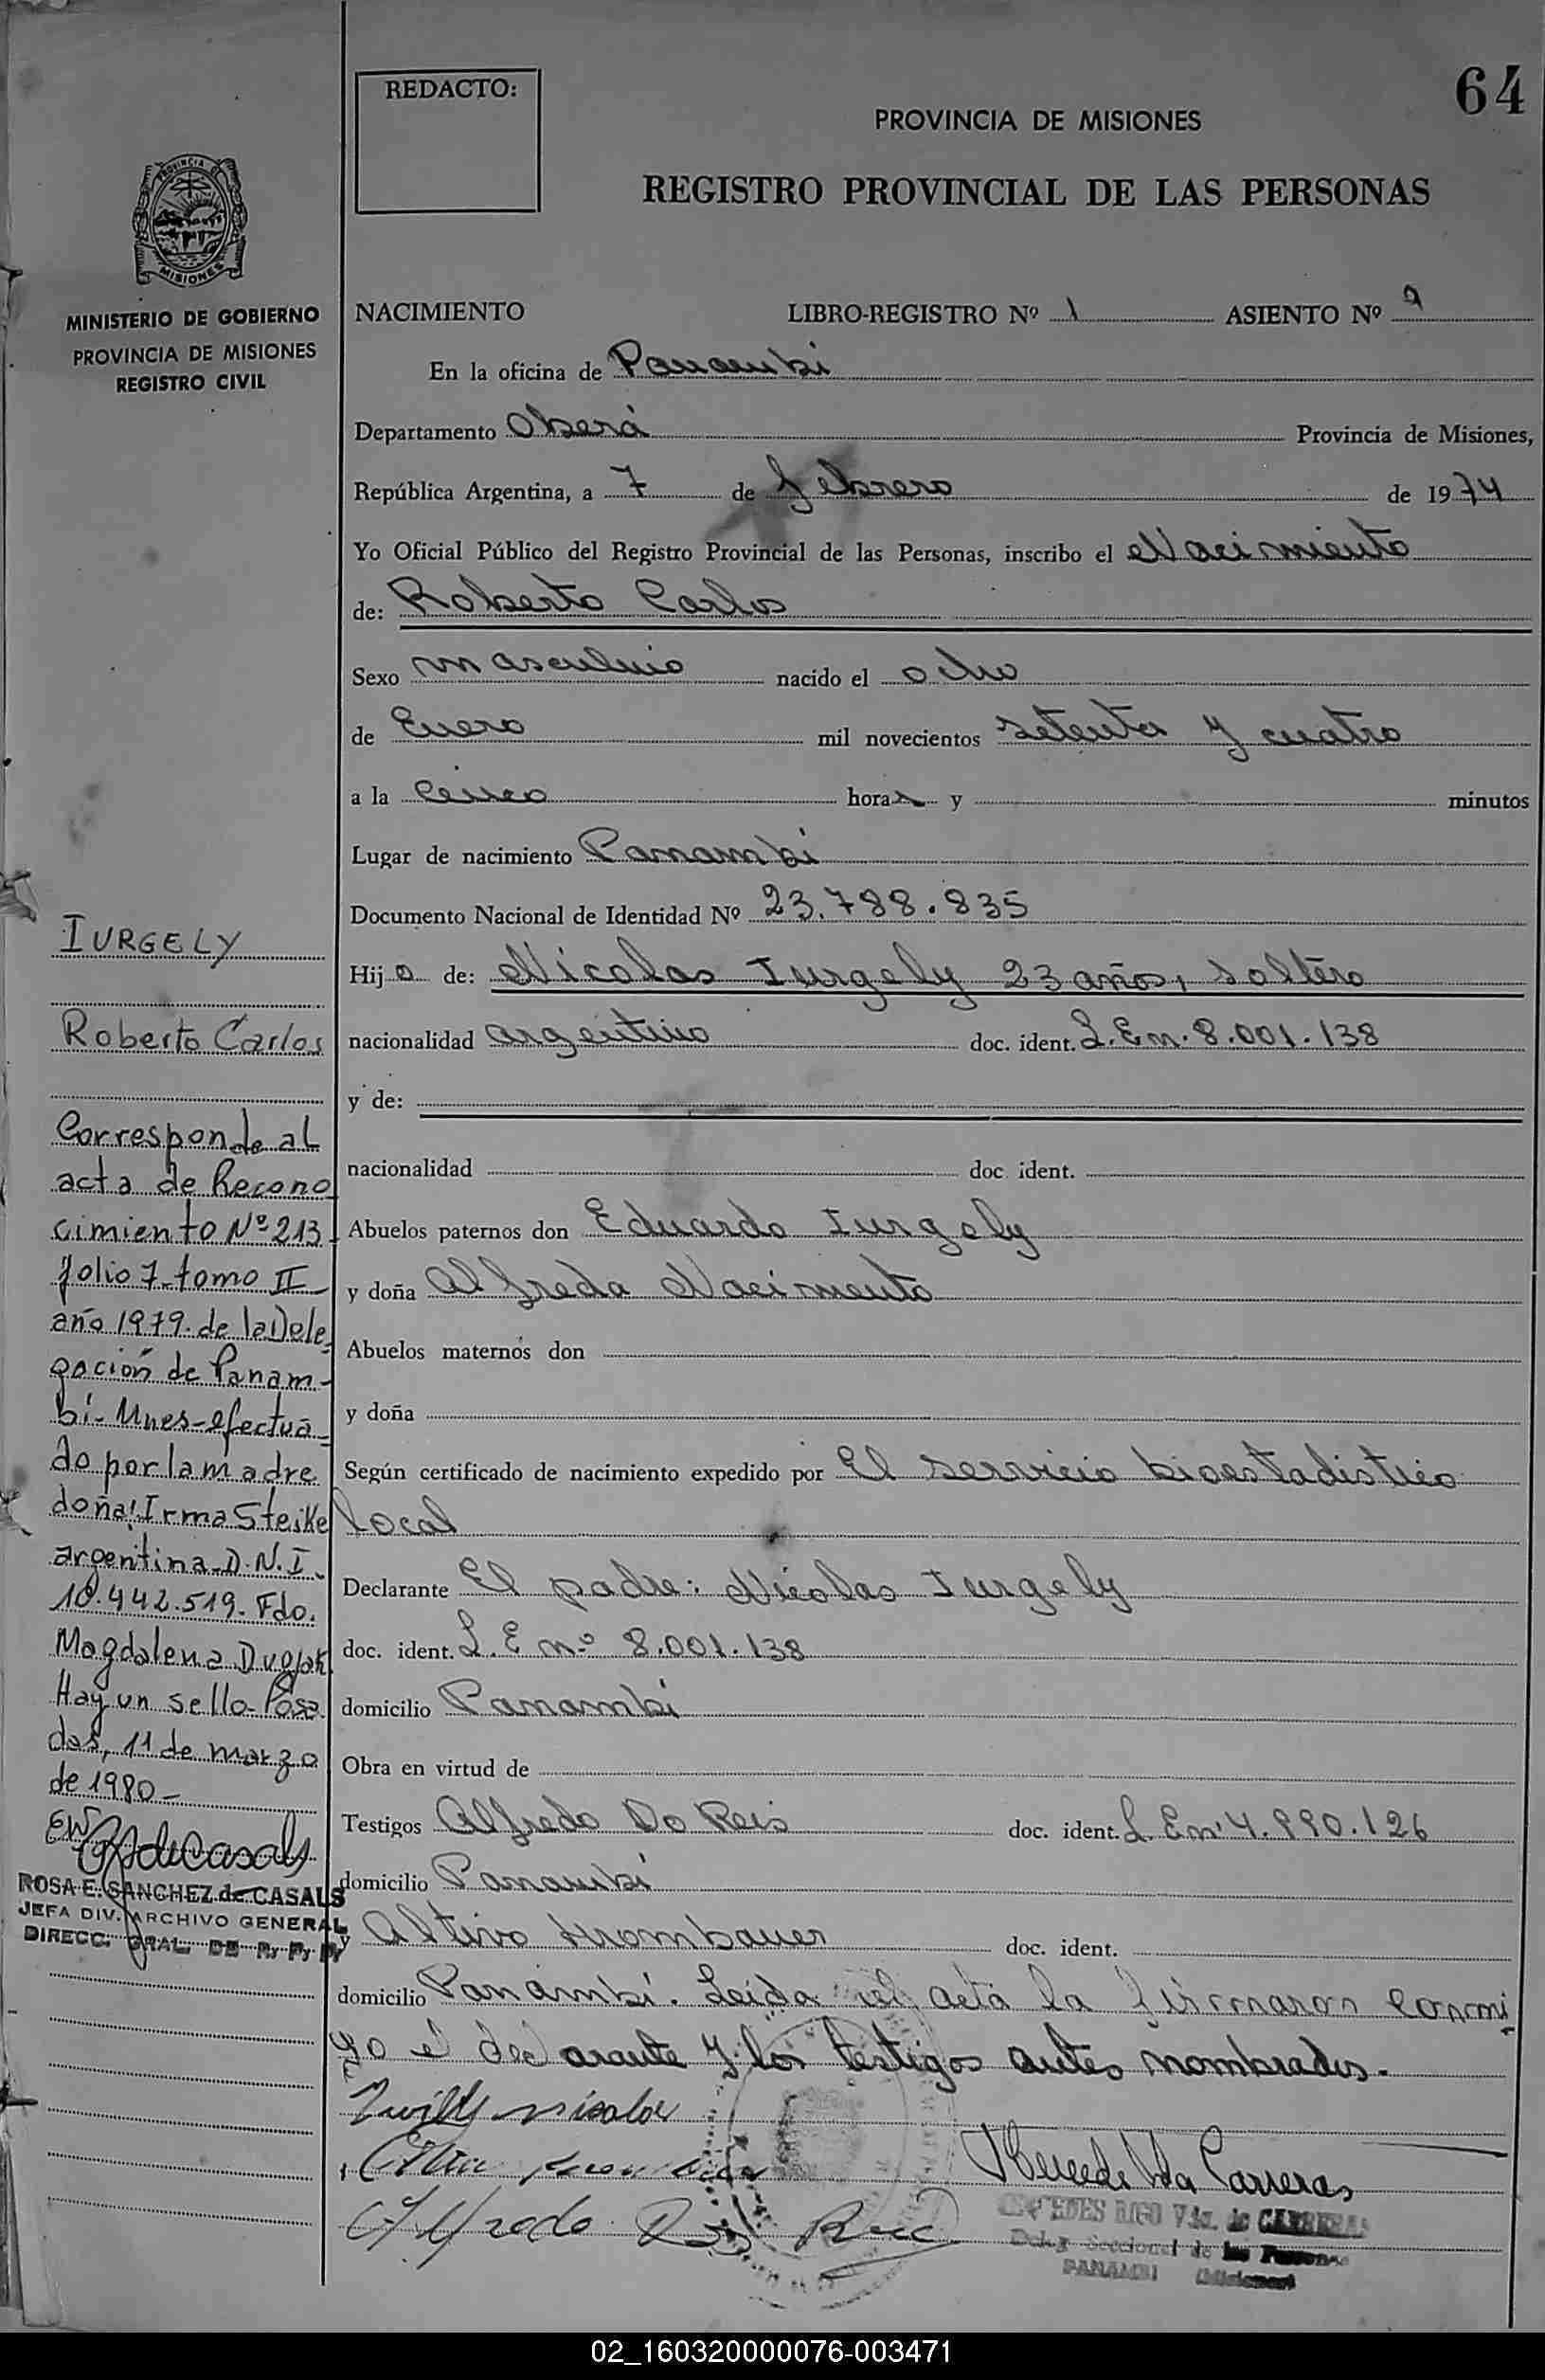 64
REDACTO:
PROVINCIA DE MISIONES
REGISTRO PROVINCIAL DE LAS PERSONAS
PROVINCIA DE
MISIONES
MINISTERIO DE GOBIERNO
PROVINCIA DE MISIONES
REGISTRO CIVIL
NACIMIENTO LIBRO-REGISTRO Nº 1 ASIENTO Nº 9
En la oficina de Panambi
Departamento Oberá Provincia de Misiones,
República Argentina, a 7 de febrero de 1974
Yo Oficial Público del Registro Provincial de las Personas, inscribo el Nacimiento
de: Roberto Carlos
Sexo masculino nacido el ocho
de Enero mil novecientos setenta y cuatro
a la cinco horas y minutos
Lugar de nacimiento Panambi
Documento Nacional de Identidad Nº 23.788.835
Hijo de: Nicolas Iurgely 23 años, soltero
nacionalidad argentino doc. ident. L.E n. 8.001.138
y de:
nacionalidad doc. ident.
Abuelos paternos don Eduardo Iurgely
y doña Alfreda Nacimento
Abuelos maternos don
y doña
Según certificado de nacimiento expedido por El servicio bioestadistico
local
Declarante El padre: Nicolas Iurgely
doc. ident. L.E nº 8.001.138
domicilio Panambi
Obra en virtud de
Testigos Alfredo Do Reis doc. ident. L.E nº 4.990.126
domicilio Panambi
y Altivo doc. ident.
domicilio Panambi. Leida el acta la firmaron conmi
go el declarante y los testigos antes nombrados.
IURGELY
Roberto Carlos
Corresponde al
acta de Recono
cimiento Nº 213
folio 7 tomo II
año 1979. de la Dele
gación de Panam-
bi- Mnes-efectua
do por la madre
doña: Irma Steike
argentina-D.N.I.
10.442.519. Fdo.
Magdalena
Hay un sello-Posa
das, 11 de marzo
de 1980-
ROSA E. SANCHEZ de CASALS
JEFA DIV. ARCHIVO GENERAL
DIRECC. GRAL. DE R. P. P.
nicolas
Alfredo
Carreras
RIGO Vda. de CARRERAS
Seccional de las Personas
PANAMBI (Misiones)
02_160320000076-003471